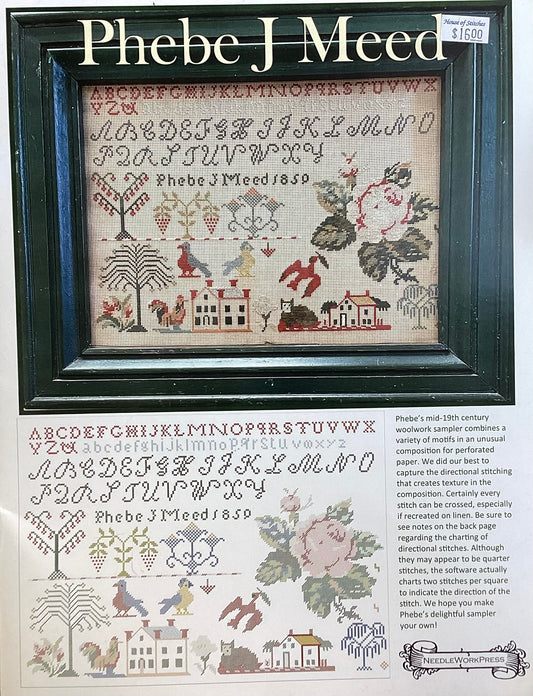 Phebe J Meed
House of Stitches
$16.00
ABCDEFGHIJKLMNOPQRSTUVWX
YZ&
ABCDEFGHIJKLMNO
PQRSTUVWXY
Phebe J Meed 1859
ABCDEFGHIJKLMNOPQRSTUVWX
YZ& abcdefghijklmnopqrstuvwxyz
ABCDEFGHIJKLMNO
PQRSTUVWXY
Phebe J Meed 1859
Phebe's mid-19th century
woolwork sampler combines a
variety of motifs in an unusual
composition for perforated
paper. We did our best to
capture the directional stitching
that creates texture in the
composition. Certainly every
stitch can be crossed, especially
if recreated on linen. Be sure to
see notes on the back page
regarding the charting of
directional stitches. Although
they may appear to be quarter
stitches, the software actually
charts two stitches per square
to indicate the direction of the
stitch. We hope you make
Phebe's delightful sampler
your own!
NEEDLEWORKPRESS